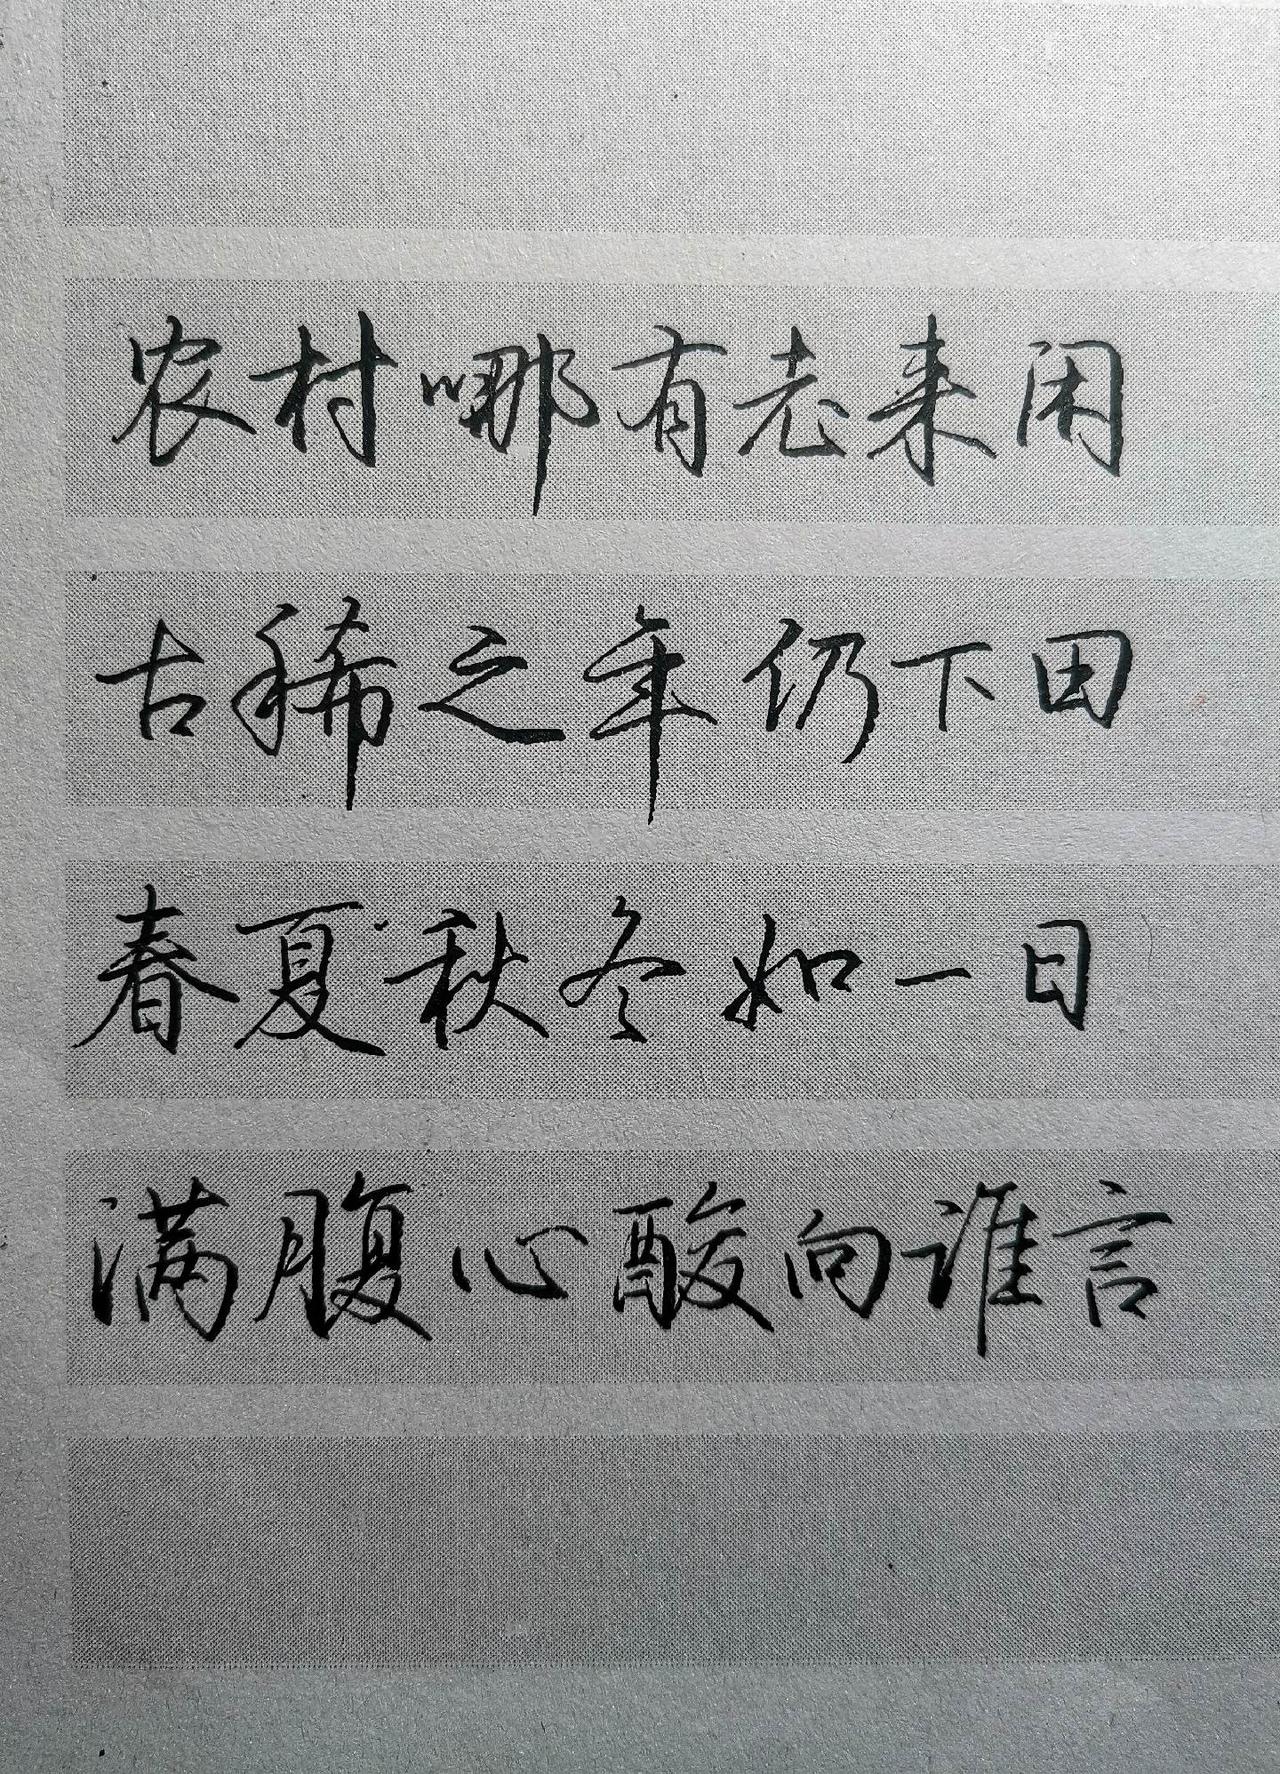 农村哪有老来闲
古稀之年仍下田
春夏秋冬如一日
满腹心酸向谁言